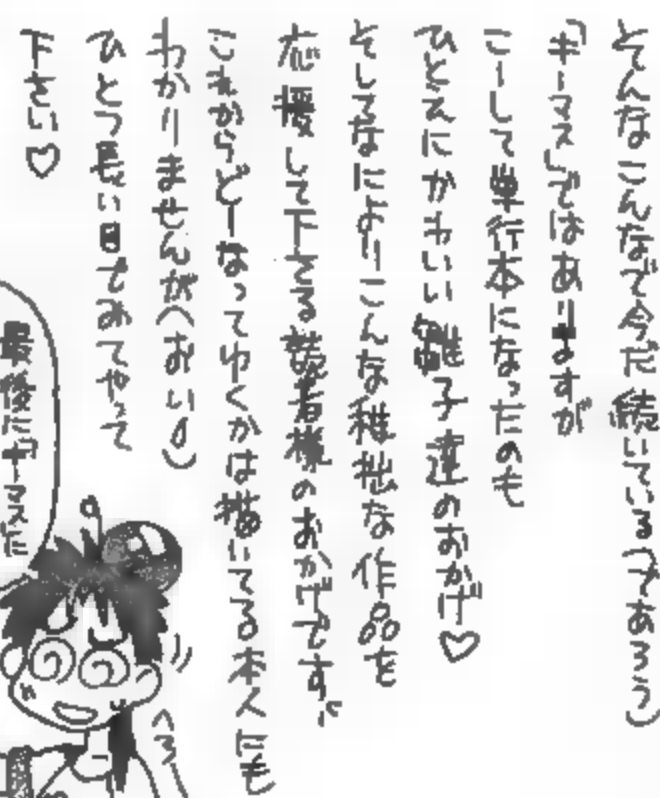 そんなこんなで今だ続いている(であろう)
「キーマス」ではありますが
こーして単行本になったのも
ひとえにかわいい雛子達のおかげ♡
そしてなによりこんな稚拙な作品を
応援して下さる読者様のおかげです。
これからどーなってゆくかは描いてる本人にも
わかりませんが(おい!)
ひとつ長い目でみてやって
下さい♡
最後にキーマスに
へろ